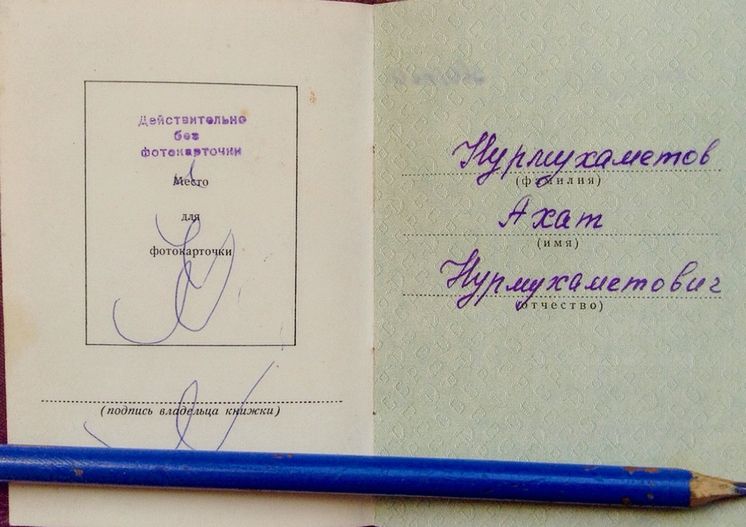 Действительно
без
фотокарточки
Место
для
фотокарточки
(подпись владельца книжки)
Нурмухаметов
(фамилия)
Ахат
(имя)
Нурмухаметович
(отчество)